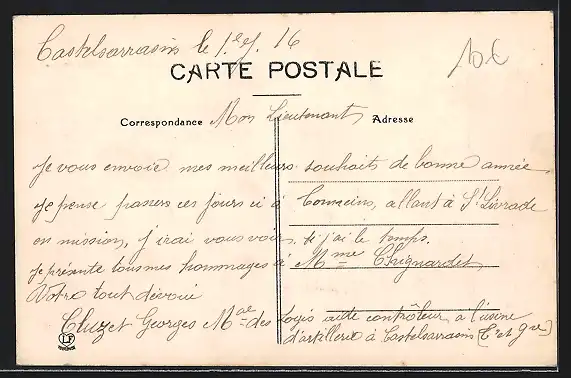 Castelsarrasin le 1er J. 16
10 €
CARTE POSTALE
Correspondance Mon Lieutenant, Adresse
Je vous envoie mes meilleurs souhaits de bonne année.
Je pense passer ces jours ci à Tonneins, allant à St Livrade
en mission, j'irai vous voir, si j'ai le temps.
Je présente tous mes hommages à Mme Chignardet,
Votre tout dévoué
Cluzet Georges Mal des Logis contrôleur à l'usine
d'artillerie à Castelsarrasin (Tn et Gne)
LF